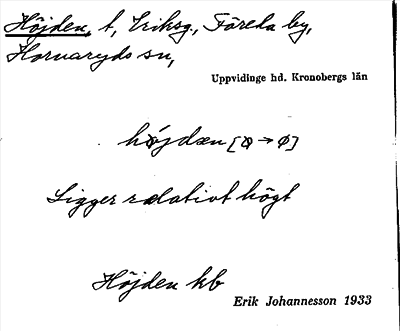 Höjden, t, Eriksg., Föreda by,
Hornaryds sn,
Uppvidinge hd. Kronobergs län
höjdæn [ꝍ → ø]
Ligger relativt högt
Höjden kb
Erik Johannesson 1933